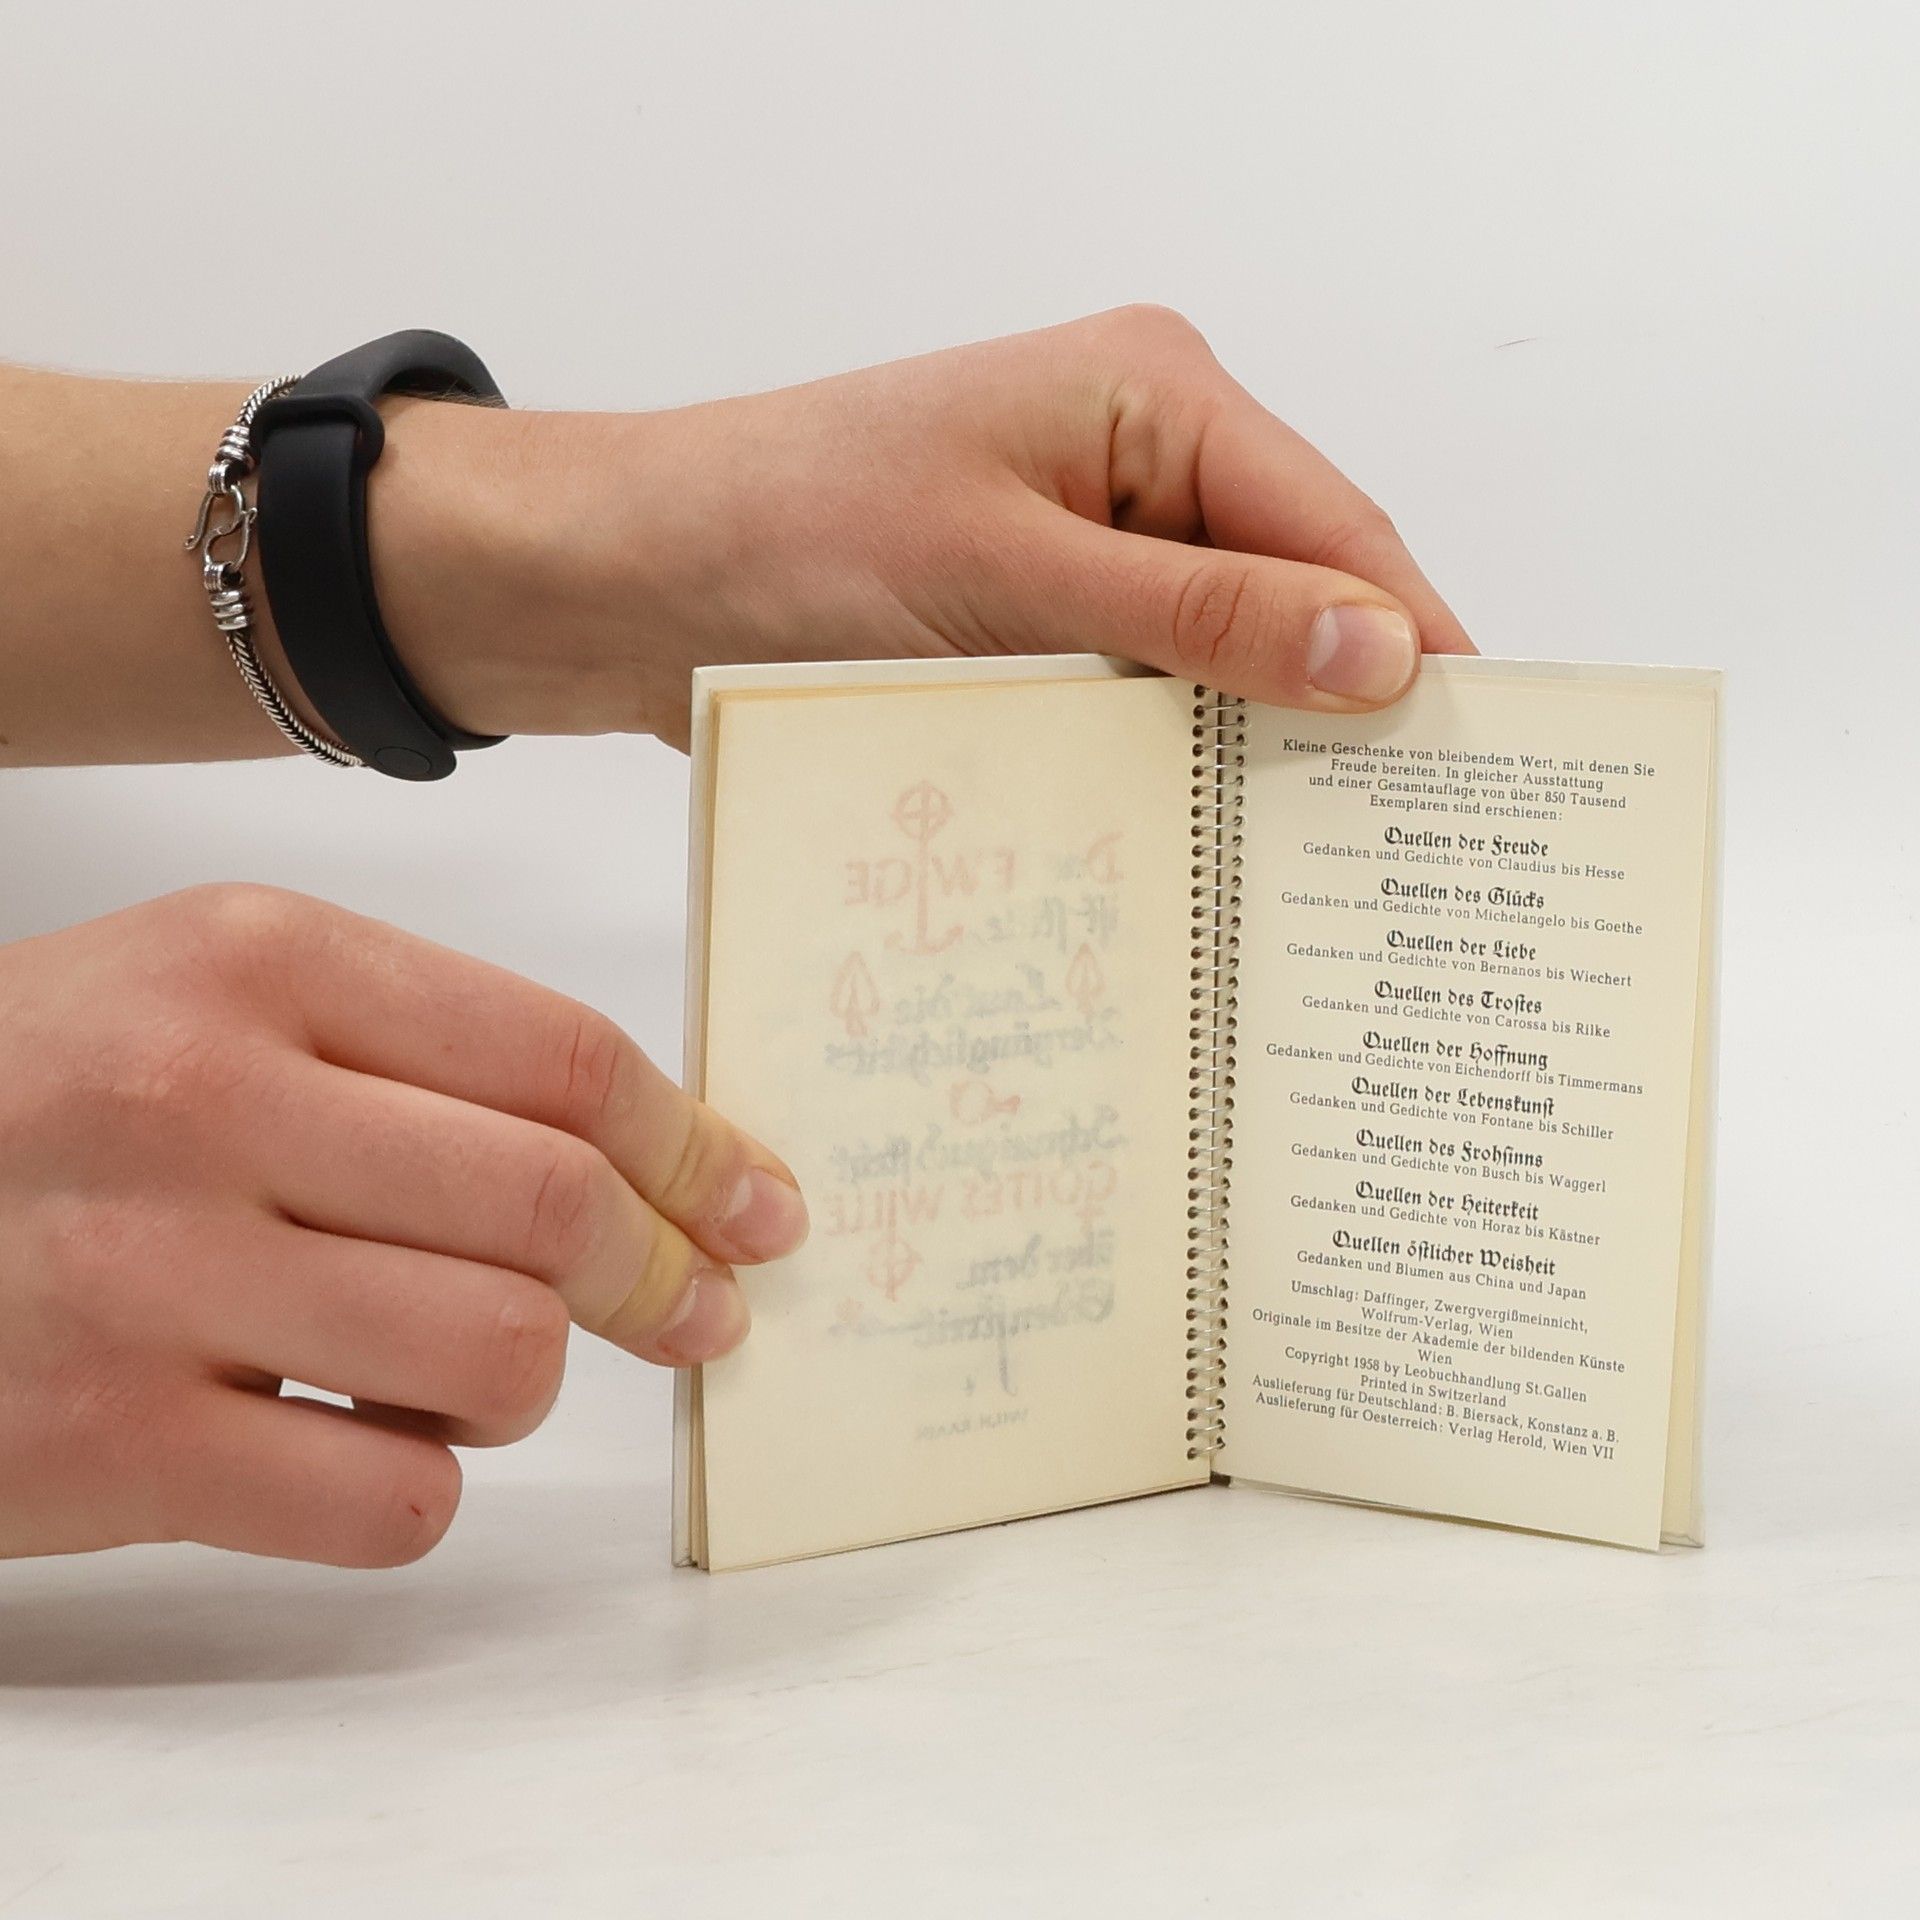 Kleine Geschenke von bleibendem Wert, mit denen Sie
Freude bereiten. In gleicher Ausstattung
und einer Gesamtauflage von über 850 Tausend
Exemplaren sind erschienen:
Quellen der Freude
Gedanken und Gedichte von Claudius bis Hesse
Quellen des Glücks
Gedanken und Gedichte von Michelangelo bis Goethe
Quellen der Liebe
Gedanken und Gedichte von Bernanos bis Wiechert
Quellen des Trostes
Gedanken und Gedichte von Carossa bis Rilke
Quellen der Hoffnung
Gedanken und Gedichte von Eichendorff bis Timmermans
Quellen der Lebenskunst
Gedanken und Gedichte von Fontane bis Schiller
Quellen des Frohsinns
Gedanken und Gedichte von Busch bis Waggerl
Quellen der Heiterkeit
Gedanken und Gedichte von Horaz bis Kästner
Quellen östlicher Weisheit
Gedanken und Blumen aus China und Japan
Umschlag: Daffinger, Zwergvergißmeinnicht,
Wolfrum-Verlag, Wien
Originale im Besitze der Akademie der bildenden Künste
Wien
Copyright 1958 by Leobuchhandlung St.Gallen
Printed in Switzerland
Auslieferung für Deutschland: B. Biersack, Konstanz a. B.
Auslieferung für Oesterreich: Verlag Herold, Wien VII